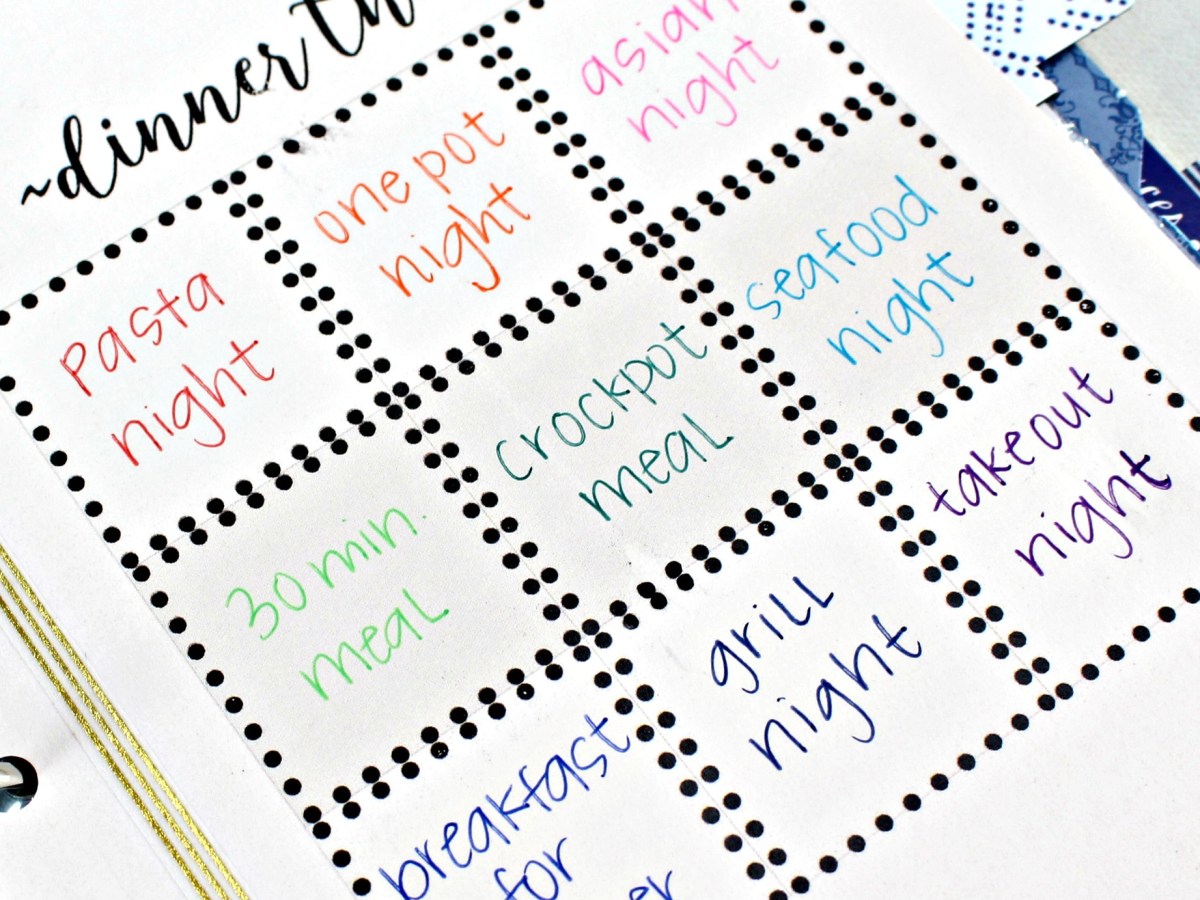 ~dinner th
pasta
night
one pot
night
asian
night
30 min.
meal
crockpot
meal
seafood
night
breakfast
for
grill
night
take out
night